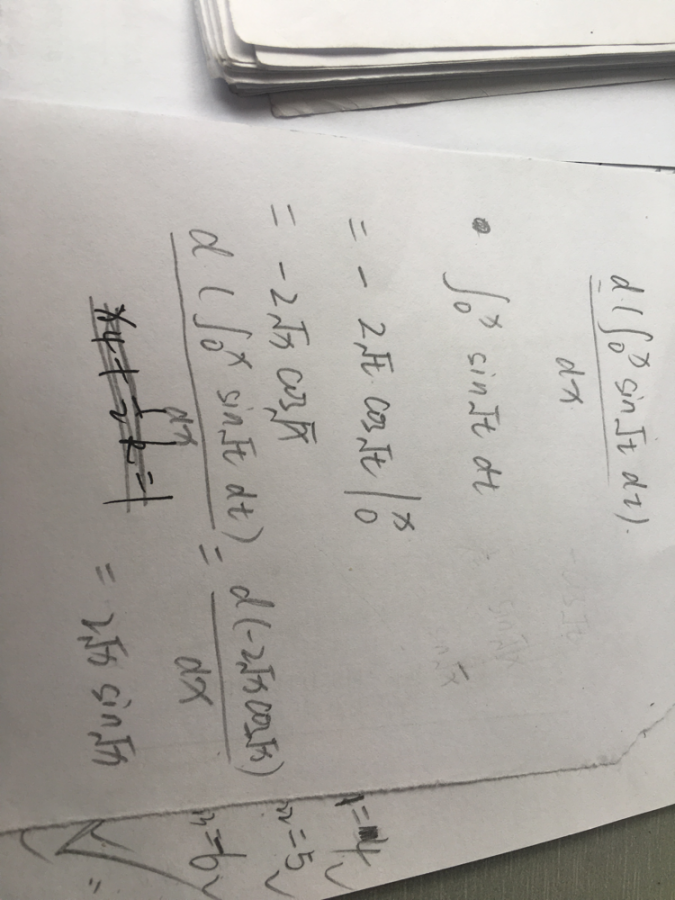 d(∫₀ˣ sin√t dt)
dx
∫₀ˣ sin√t dt
= - 2√t cos√t |₀ˣ
= - 2√x cos√x
d(∫₀ˣ sin√t dt) = d(-2√x cos√x)
dx dx
= 2√x sin√x
=4
=5
=6
=